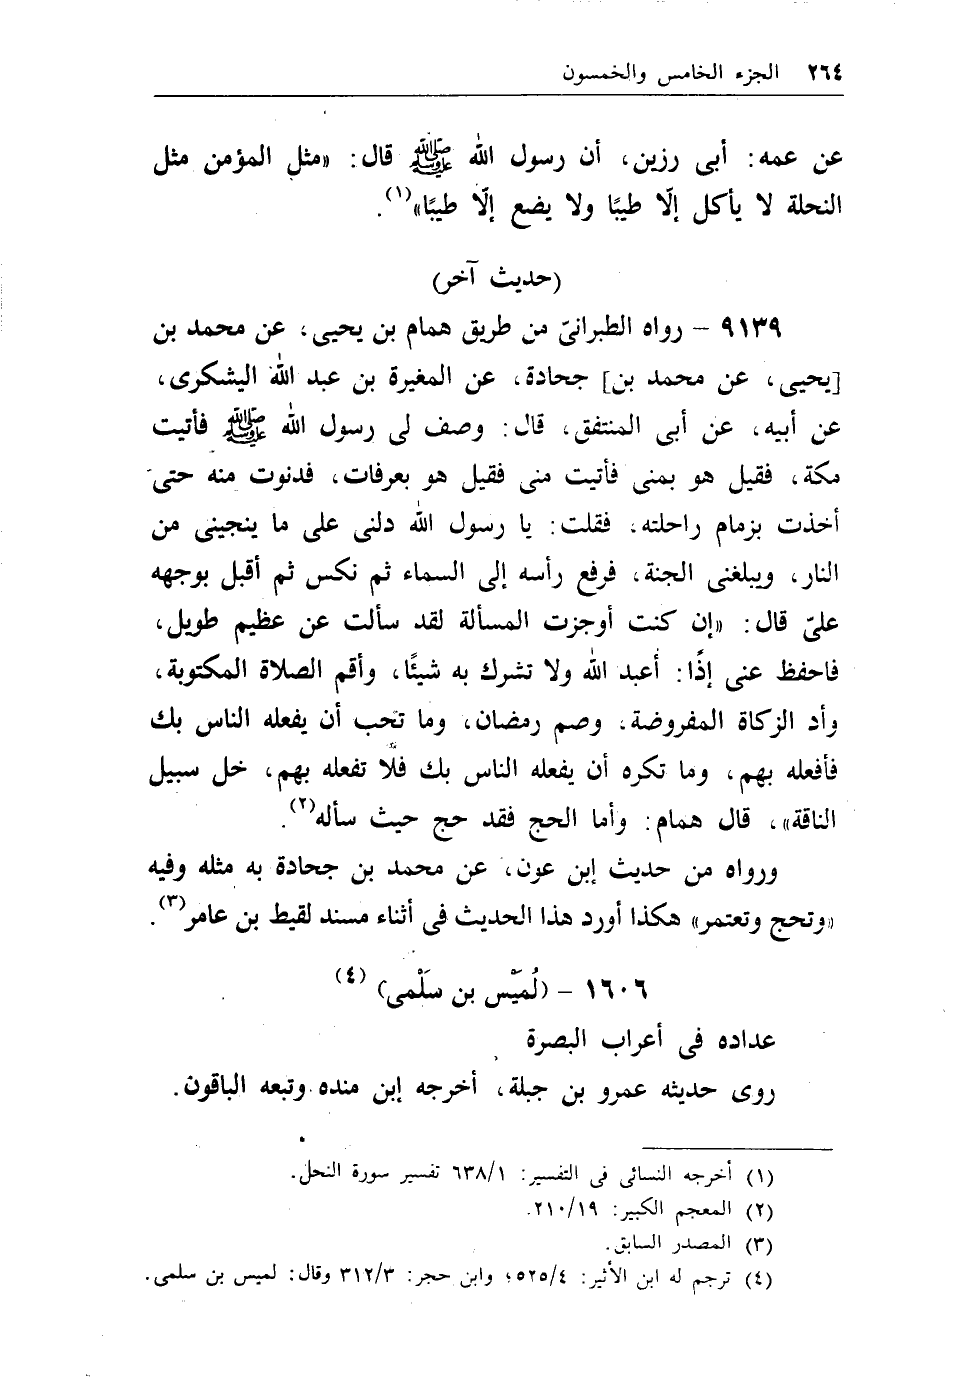 ٢٦٤ الجزء الخامس والخمسون
عن عمه: أبى رزين، أن رسول الله ﷺ قال: «مثل المؤمن مثل
النحلة لا يأكل إلّا طيبًا ولا يضع إلّا طيبًا»(١).
(حديث آخر)
٩١٣٩ – رواه الطبرانىّ من طريق همام بن يحيى، عن محمد بن
[يحيى، عن محمد بن] جحادة، عن المغيرة بن عبد الله اليشكرى،
عن أبيه، عن أبى المنتفق، قال: وصف لى رسول الله ﷺ فأتيت
مكة، فقيل هو بمنى فأتيت منى فقيل هو بعرفات، فدنوت منه حتى
أخذت بزمام راحلته، فقلت: يا رسول الله دلنى على ما ينجينى من
النار، ويبلغنى الجنة، فرفع رأسه إلى السماء ثم نكس ثم أقبل بوجهه
علىّ قال: «إن كنت أوجزت المسألة لقد سألت عن عظيم طويل،
فاحفظ عنى إذًا: أعبد الله ولا تشرك به شيئًا، وأقم الصلاة المكتوبة،
وأد الزكاة المفروضة، وصم رمضان، وما تحب أن يفعله الناس بك
فأفعله بهم، وما تكره أن يفعله الناس بك فلا تفعله بهم، خل سبيل
الناقة»، قال همام: وأما الحج فقد حج حيث سأله(٢).
ورواه من حديث إبن عون، عن محمد بن جحادة به مثله وفيه
«وتحج وتعتمر» هكذا أورد هذا الحديث فى أثناء مسند لقيط بن عامر(٣).
١٦٠٦ – (لُمَيْس بن سَلْمى) (٤)
عداده فى أعراب البصرة
روى حديثه عمرو بن جبلة، أخرجه إبن منده وتبعه الباقون.
(١) أخرجه النسائى فى التفسير: ٦٣٨/١ تفسير سورة النحل.
(٢) المعجم الكبير: ٢١٠/١٩.
(٣) المصدر السابق.
(٤) ترجم له ابن الأثير: ٥٢٥/٤؛ وابن حجر: ٣١٢/٣ وقال: لميس بن سلمى.